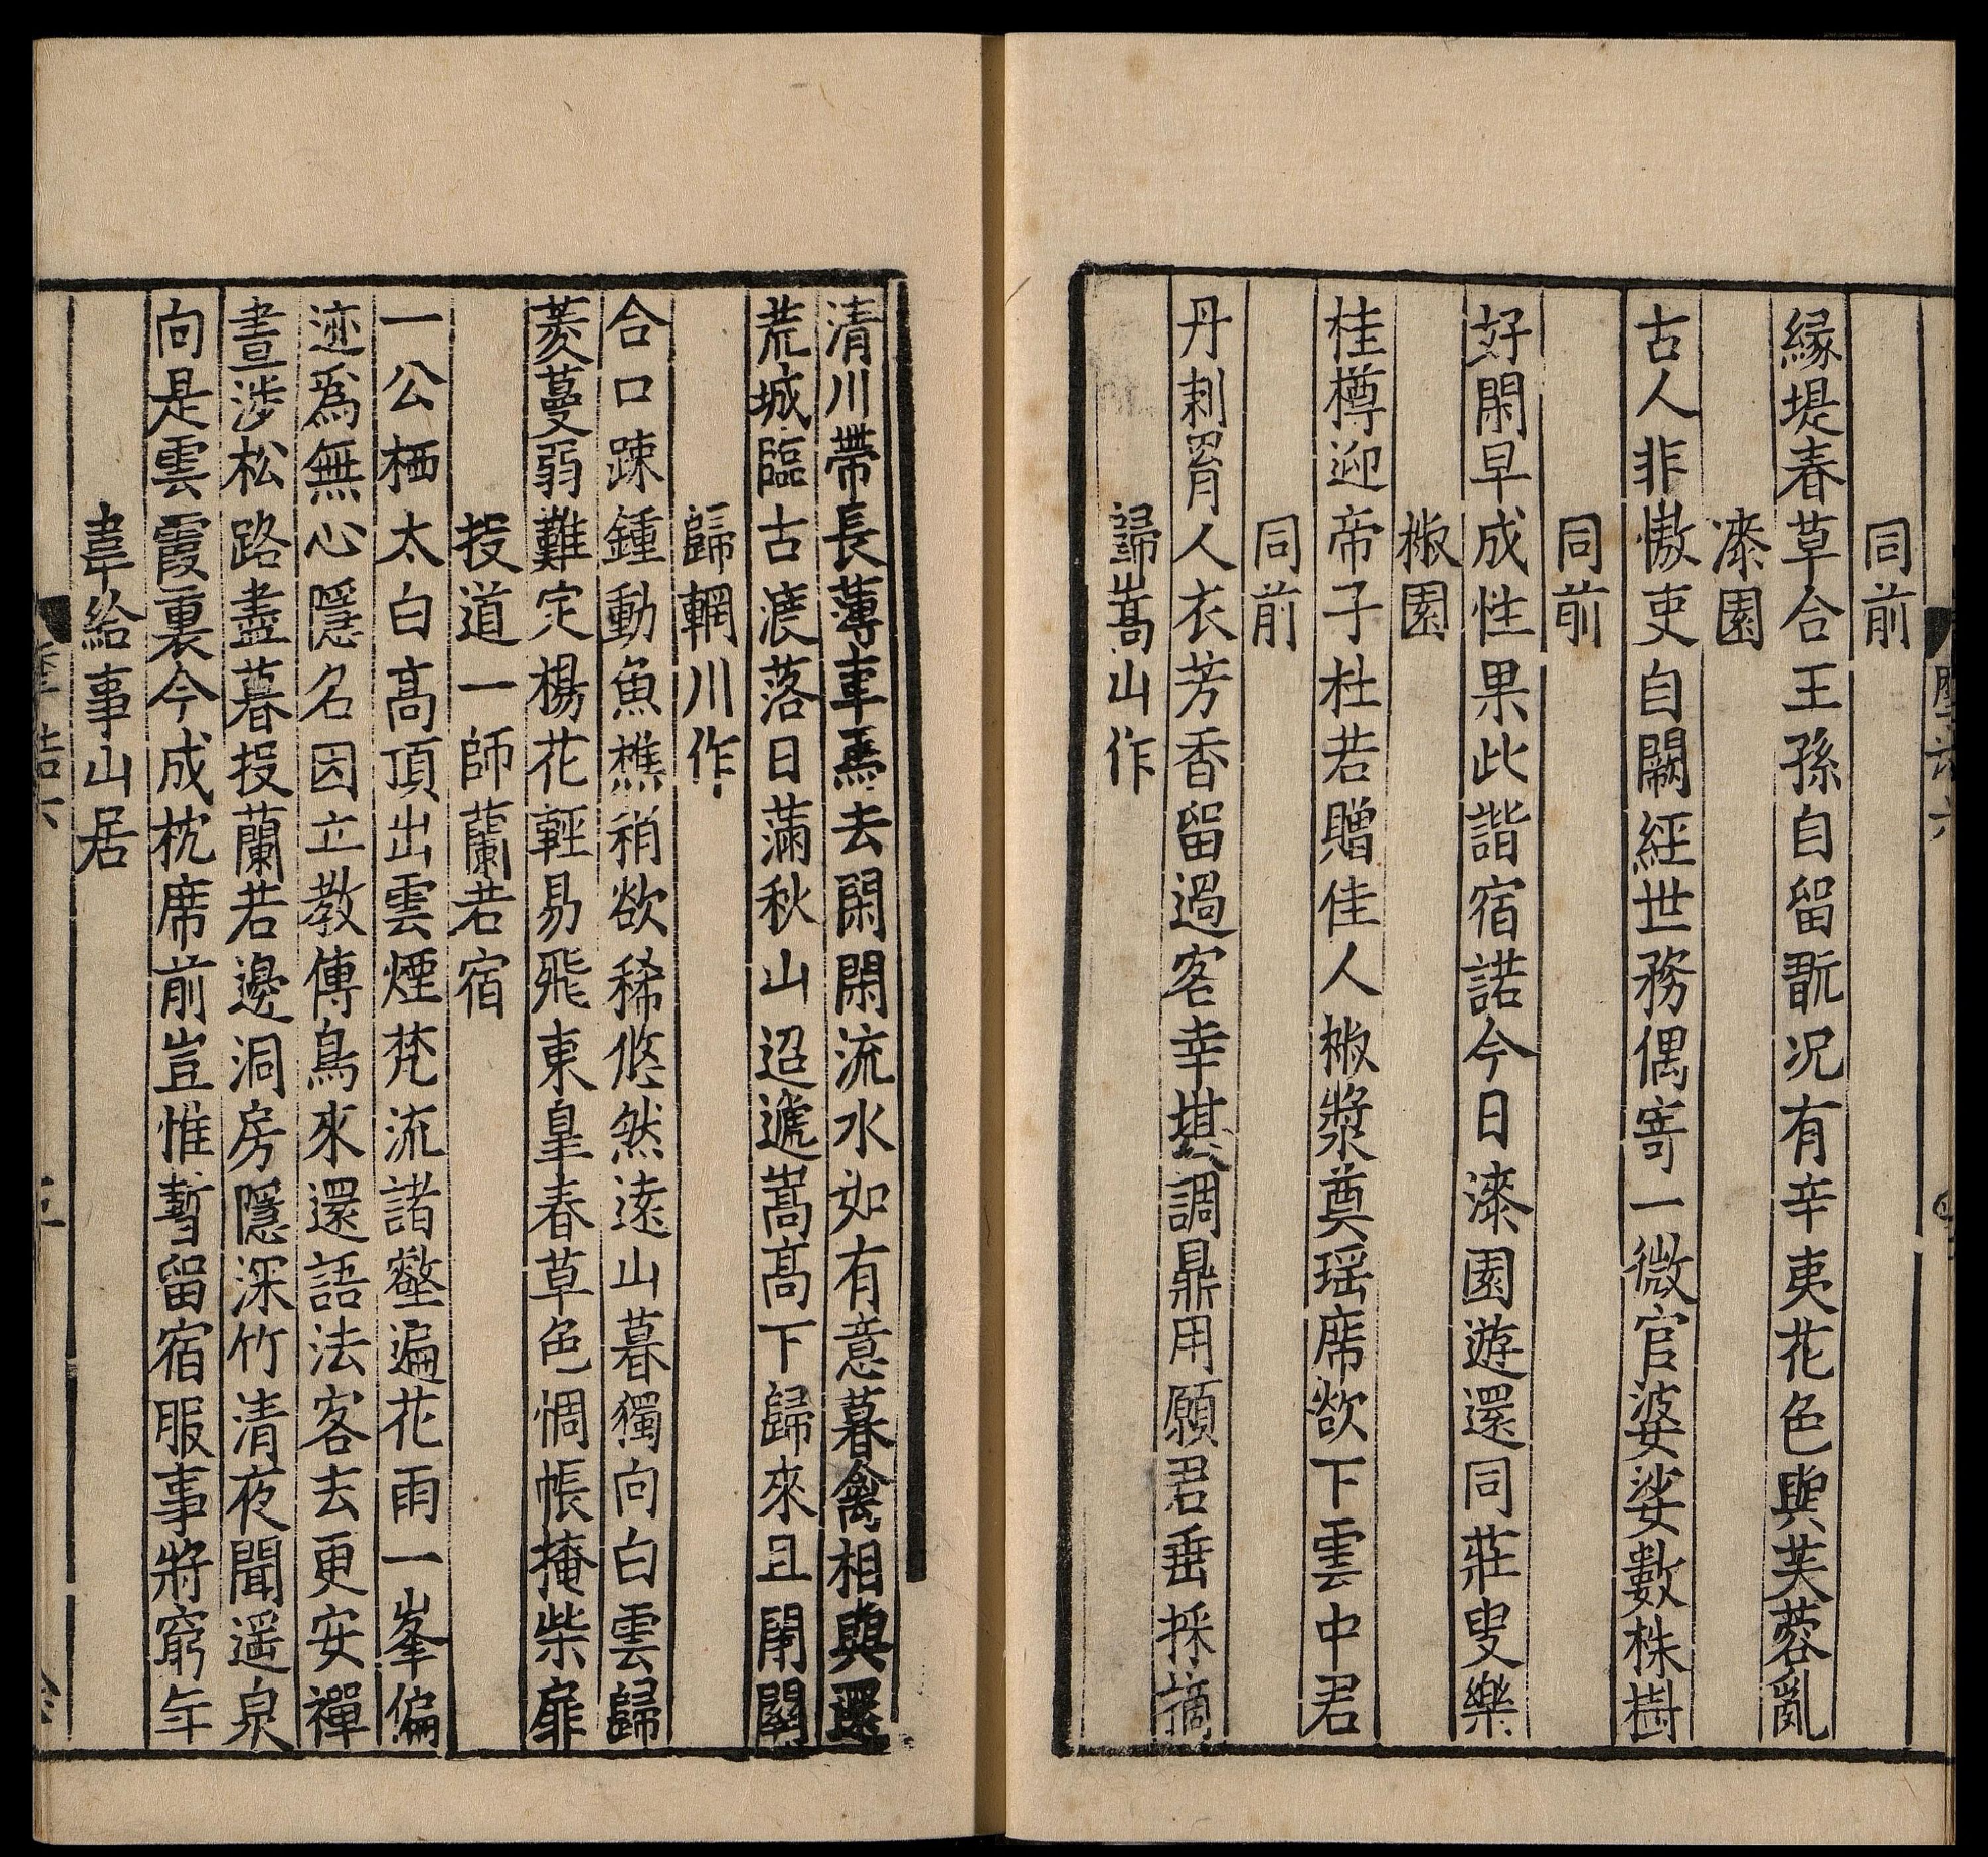 同前
緣堤春草合王孫自留翫况有辛夷花色與芙蓉亂
漆園
古人非慠吏自闕經世務偶寄一微官婆娑數株樹
同前
好閑早成性果此諧宿諾今日漆園遊還同莊叟樂
椒園
桂樽迎帝子杜若贈佳人椒漿奠瑶席欲下雲中君
同前
丹刺罥人衣芳香留過客幸堪調鼎用願君垂採摘
歸嵩山作
清川帶長薄車馬去閑閑流水如有意暮禽相與還
荒城臨古渡落日滿秋山迢遞嵩髙下歸來且閉關
歸輞川作
合口踈鍾動魚樵稍欲稀悠然遠山暮獨向白雲歸
菱蔓弱難定楊花輕易飛東臯春草色惆帳掩柴扉
投道一師蘭若宿
一公栖太白髙頂出雲煙梵流諸壑遍花雨一峯偏
迹爲無心隱名因立教傳鳥來還語法客去更安禪
晝涉松路盡暮投蘭若邊洞房隱深竹清夜聞遥泉
向是雲霞裏今成枕席前豈惟暫留宿服事將窮年
韋給事山居